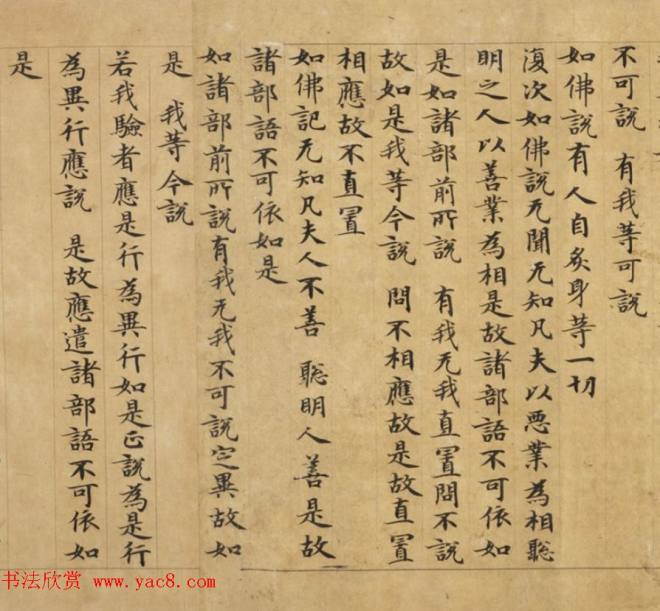 不可說　有我等可說
如佛說有人自炙身等一切
復次如佛說无聞无知凡夫以惡業為相聡
明之人以善業為相是故諸部語不可依如
是如諸部前所說　有我无我直置問不說
故如是我等今說　問不相應故是故直置
相應故不直置
如佛記无知凡夫人不善　聡明人善是故
諸部語不可依如是
如諸部前所說有我无我不可說定異故如
是　我等今說
若我驗者應是行為異行如是正說為是行
為異行應說　是故應遣諸部語不可依如
是
书法欣赏 www.yac8.com